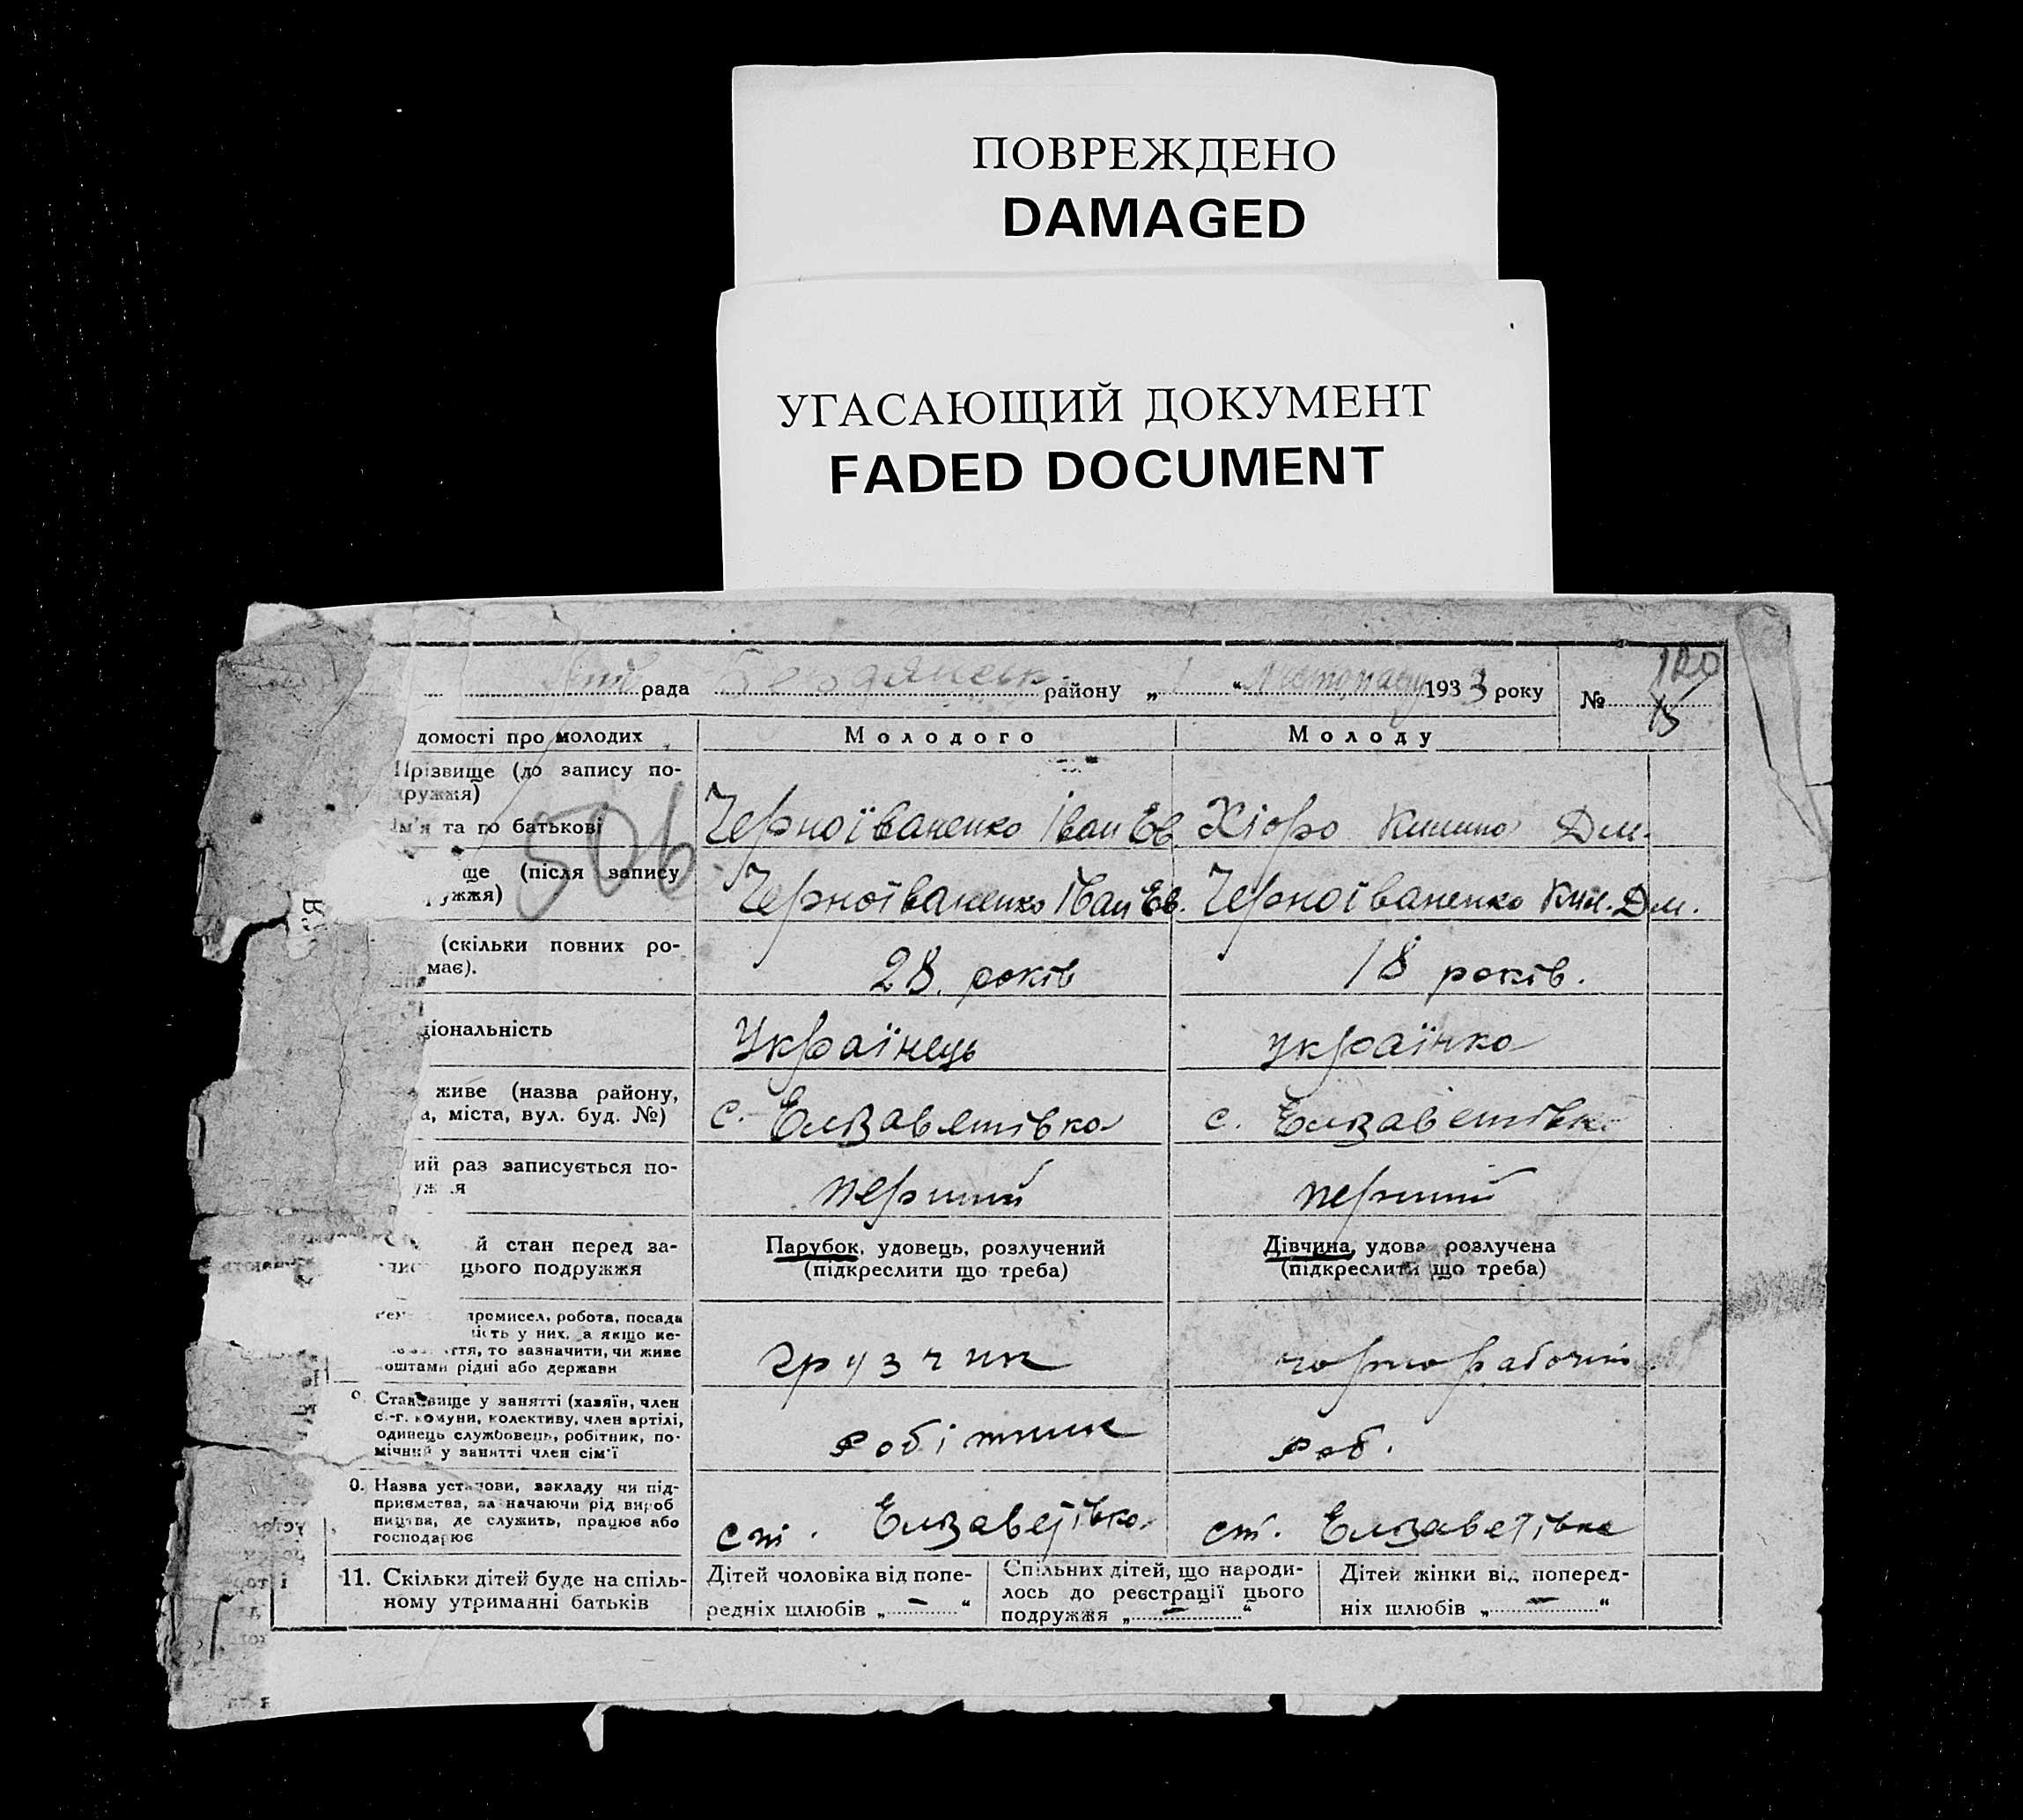 ПОВРЕЖДЕНО
DAMAGED
УГАСАЮЩИЙ ДОКУМЕНТ
FADED DOCUMENT
рада Бердянськ району „ 1 “ листопаду 1933 року № 120
домості про молодих Молодого Молоду
Прізвище (до запису по-
дружжя)
Ім'я та по батькові Черноїваненко Іван Ев. Хіоро Килино Дм.
506
ще (після запису
ружжя) Черноїваненко Іван Ев. Черноіваненко Кил. Дм.
(скільки повних ро-
має). 28 років 18 років.
ціональність Українець українко
живе (назва району,
а, міста, вул. буд. №) с. Елизавятівка с. Елизаветівка
ий раз записується по-
уж я перший перший
й стан перед за- Парубок, удовець, розлучений Дівчина, удова розлучена
цього подружжя (підкреслити що треба) (підкреслити що треба)
промисел, робота, посада
ість у них, а якщо не-
ття, то зазначити, чи живе
коштами рідні або держави грузчик чорнорабочий
Становище у занятті (хазяїн, член
с.-г. комуни, колективу, член артілі,
одинець службовець, робітник, по-
мічний у занятті член сім'ї робітник роб.
0. Назва установи, закладу чи під-
приємства, зазначаючи рід вироб
ництва, де служить, працює або
господарює ст. Елизаветівка ст. Елизаветівка
11. Скільки дітей буде на спіль-
ному утриманні батьків
Дітей чоловіка від попе-
редніх шлюбів „ — “
Спільних дітей, що народи-
лось до реєстрації цього
подружжя „ — “
Дітей жінки від поперед-
ніх шлюбів „ — “